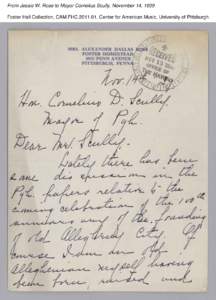 From Jessie W. Rose to Mayor Cornelius Scully, November 14, 1939
Foster Hall Collection, CAM.FHC.2011.01, Center for American Music, University of Pittsburgh
MRS. ALEXANDER DALLAS ROSE
FOSTER HOMESTEAD
PENN AVENUE
PITTSBURGH, PENNA.
RECEIVED
NOV 15
OFFICE OF
THE MAYOR
Nov. 14th
Hon. Cornelius D. Scully
Mayor of Pgh.
Dear Mr. Scully.
Lately there has been
some discussion in the
Pgh. papers relative to the
coming celebration of the 100th
anniversary of the founding
of old Allegheny City. Of
course I am an old
Alleghenian myself having
been born, raised and